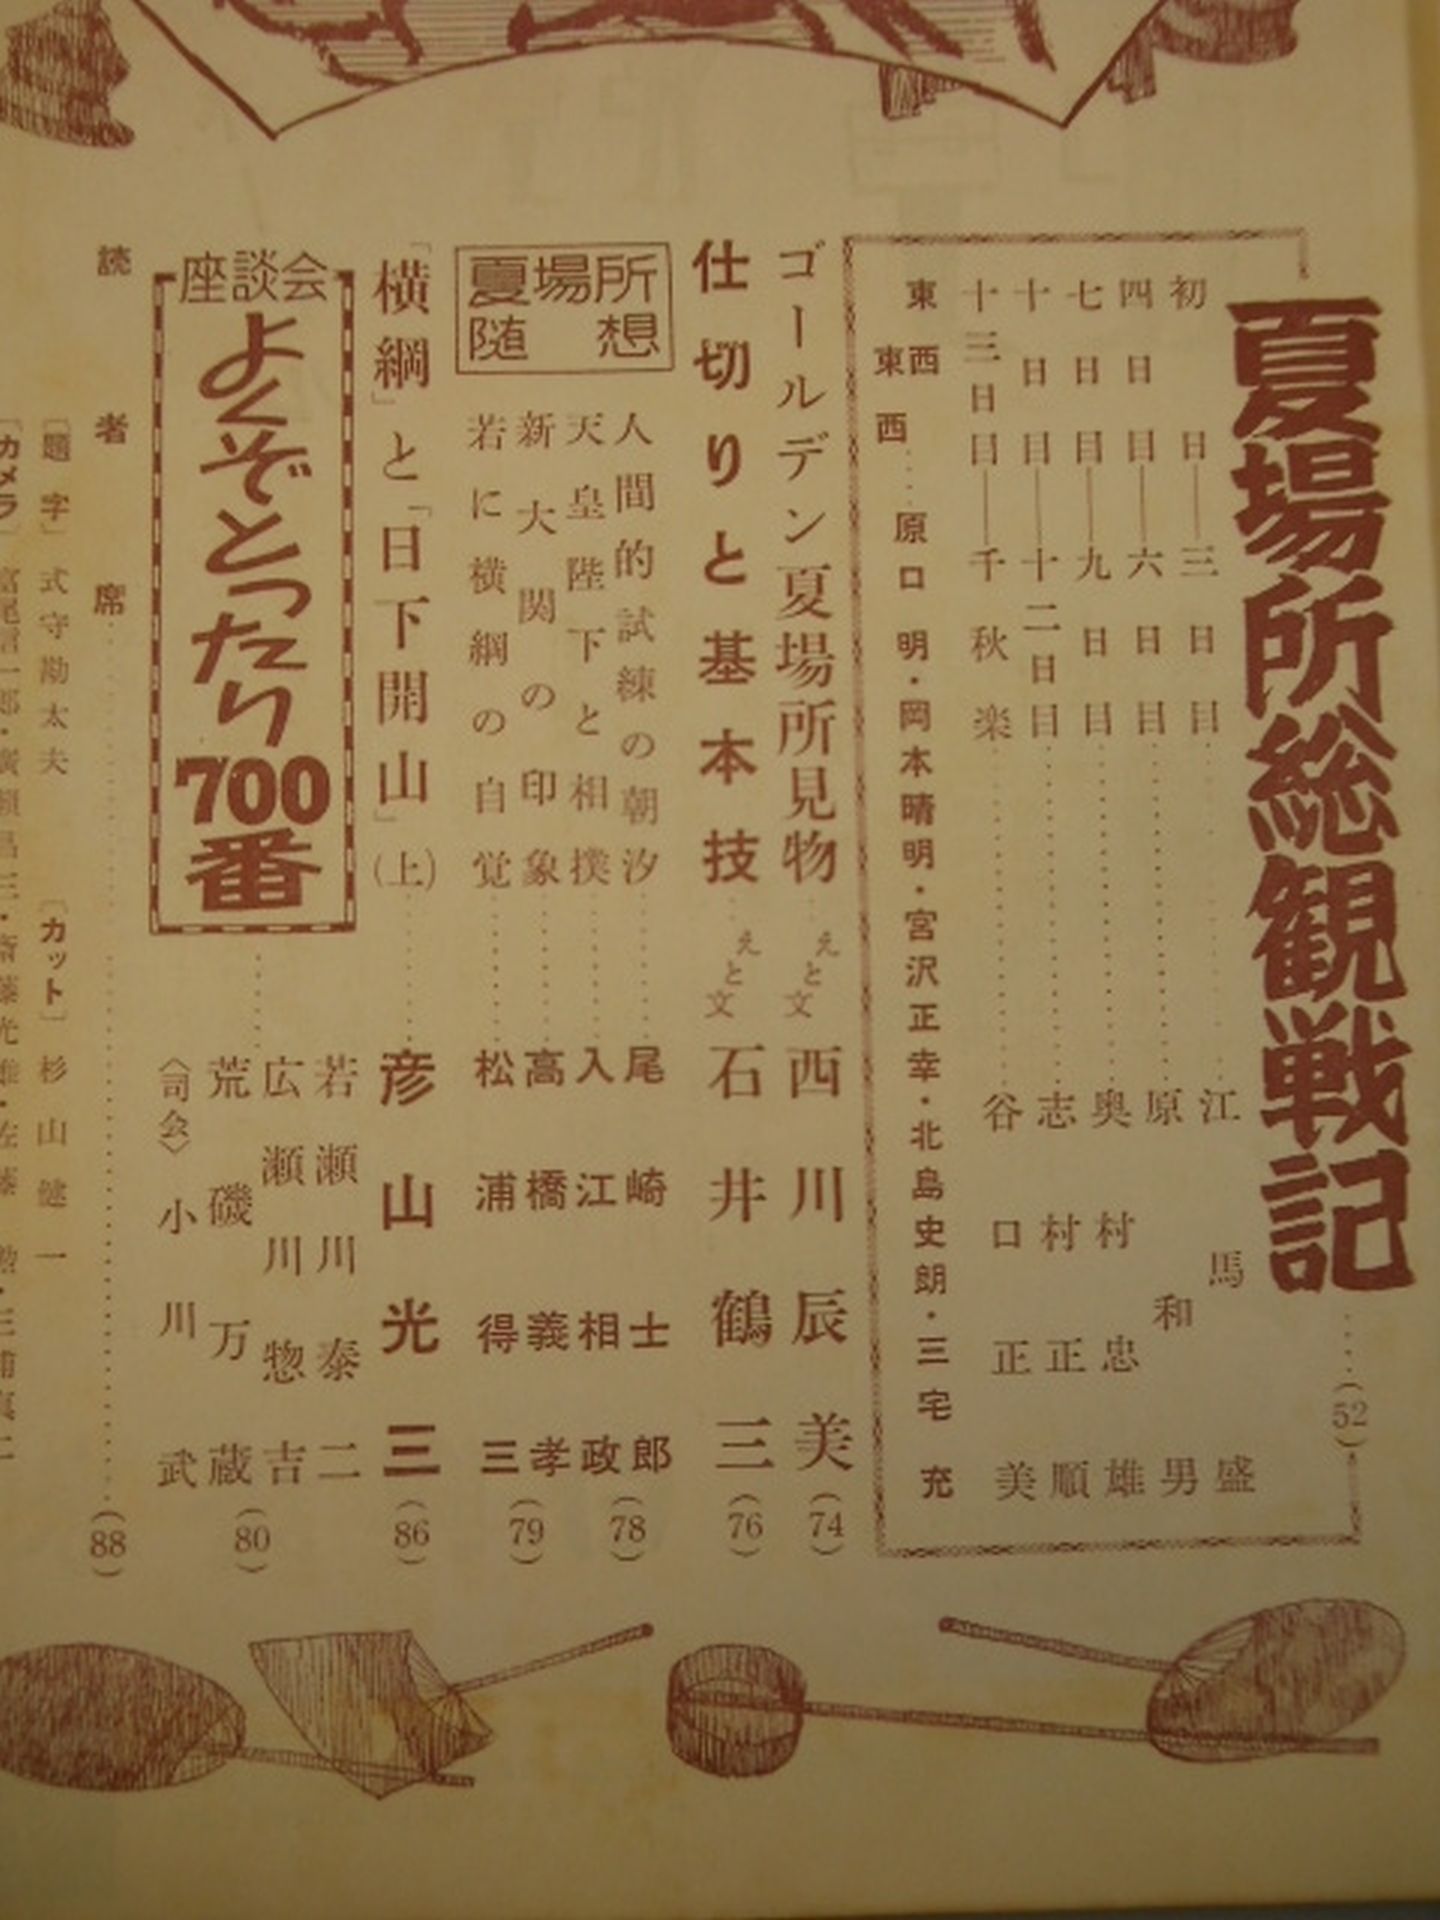 夏場所総観戦記……(52)
初日――三日目……江馬盛
四日目――六日目……原和男
七日目――九日目……奥村忠雄
十日目――十二日目……志村正順
十三日目――千秋楽……谷口正美
東西
東西……原口明・岡本晴明・宮沢正幸・北島史朗・三宅充
ゴールデン夏場所見物……えと文 西川辰美(74)
仕切りと基本技……えと文 石井鶴三(76)
夏場所随想
人間的試練の朝汐……尾崎士郎(78)
天皇陛下と相撲……入江相政
新大関の印象……高橋義孝(79)
若に横綱の自覚……松浦得三
「横綱」と「日下開山」(上)……彦山光三(86)
座談会
よくぞとったり700番……(80)
若瀬川泰二
広瀬川惣吉
荒磯万蔵
〈司会〉小川武
読者席……(88)
〔題字〕式守勘太夫 〔カット〕杉山健一
〔カメラ〕